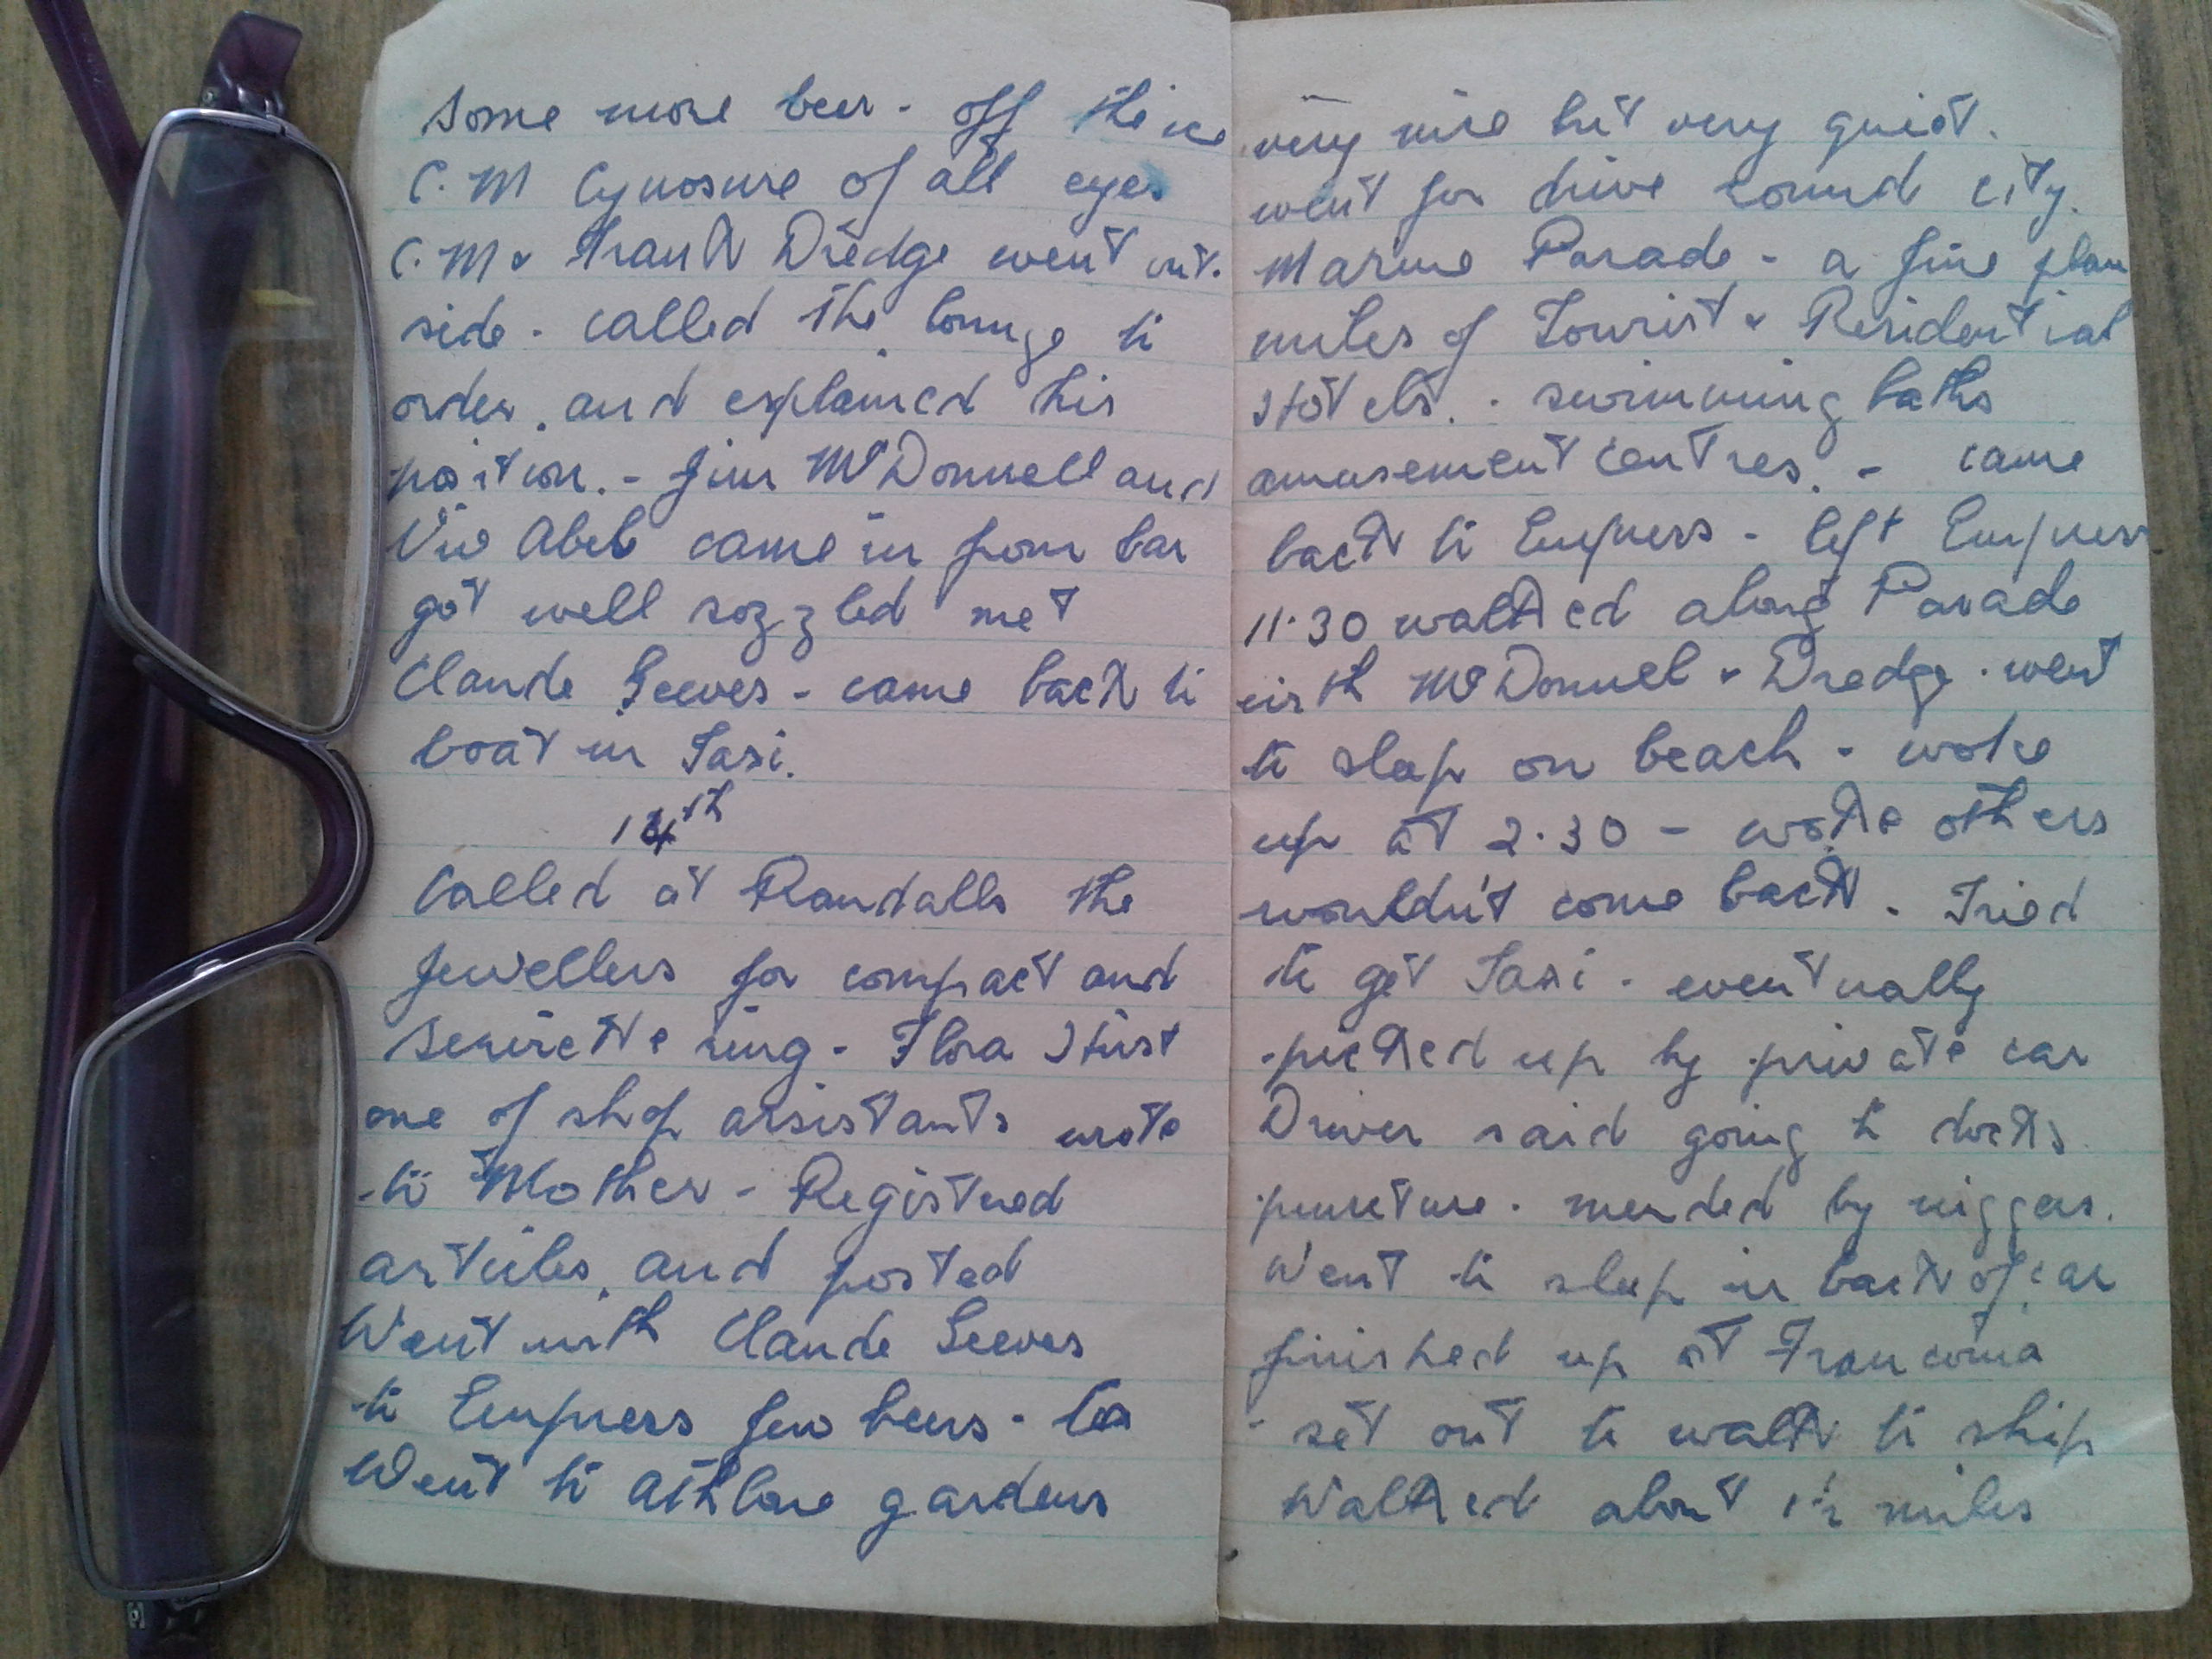 Some more beer - off the ice
C.M Cynosure of all eyes
C.M & Frank Dredge went out-
side - called the lounge to
order. and explained his
position. - Jim McDonnell and
Viv Abel came in from bar
got well sozzled met
Claude Seeves - came back to
boat in Taxi.
14th
Called at Randalls the
Jewellers for compact and
serviette ring - Flora Hurst
one of shop assistants wrote
to Mother - Registered
articles, and posted
Went with Claude Seeves
to Empress few beers -
Went to Athlone gardens
very nice but very quiet.
went for drive round city.
Marine Parade - a fine place
miles of Tourist & Residential
Hotels. - swimming baths
amusement centres. - came
back to Empress - left Empress
11.30 walked along Parade
with McDonnel & Dredge. went
to sleep on beach - woke
up at 2.30 - woke others
wouldn't come back. Tried
to get Taxi - eventually
picked up by private car
Driver said going to docks
puncture. mended by niggers.
Went to sleep in back of car
finished up at Franconia
- set out to walk to ship
Walked about 1½ miles